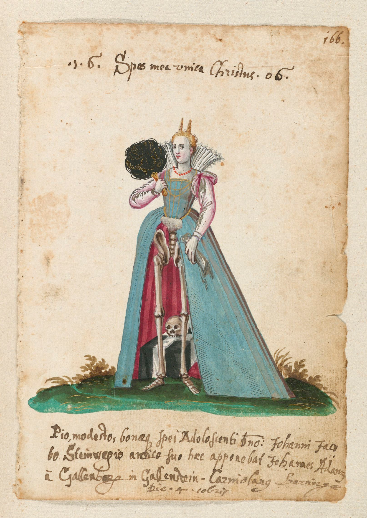 166.
.1.6. Spes mea unica Christus. 06.
Pio, modesto, bonæq Spei Adolescenti Dno: Johanni Jaco
bo Steinwegio amico suo hæc apponebat Johannes Adamus
à Gallenberg in Gallenstein
Die 4